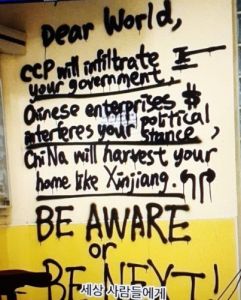 Dear World,
CCP will infiltrate
your government,
Chinese enterprises $
interferes your political
stance,
ChiNa will harvest your
home like Xinjiang.
BE AWARE
or
BE NEXT!
세상 사람들에게